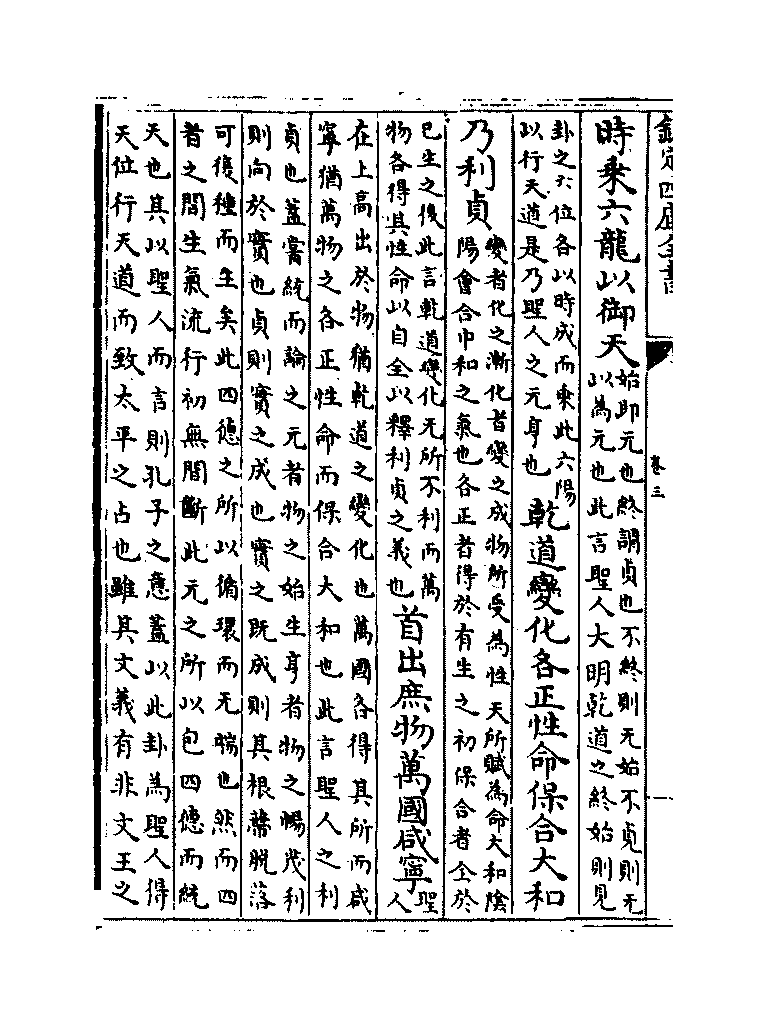 欽定四庫全書
卷三
時乘六龍以御天
始即元也終謂貞也不終則无始不貞則无
以為元也此言聖人大明乾道之終始則見
卦之六位各以時成而乗此六陽
以行天道是乃聖人之元亨也
乾道變化各正性命保合大和
乃利貞
變者化之漸化者變之成物所受為性天所賦為命大和陰
陽會合中和之氣也各正者得於有生之初保合者全於
已生之後此言乾道變化无所不利而萬
物各得其性命以自全以釋利貞之義也
首出庶物萬國咸寧
聖
人
在上高出於物猶乾道之變化也萬國各得其所而咸
寧猶萬物之各正性命而保合大和也此言聖人之利
貞也蓋嘗統而論之元者物之始生亨者物之暢茂利
則向於實也貞則實之成也實之既成則其根蔕脫落
可復種而生矣此四德之所以循環而无端也然而四
者之間生氣流行初無間斷此元之所以包四德而統
天也其以聖人而言則孔子之意蓋以此卦為聖人得
天位行天道而致太平之占也雖其文義有非文王之